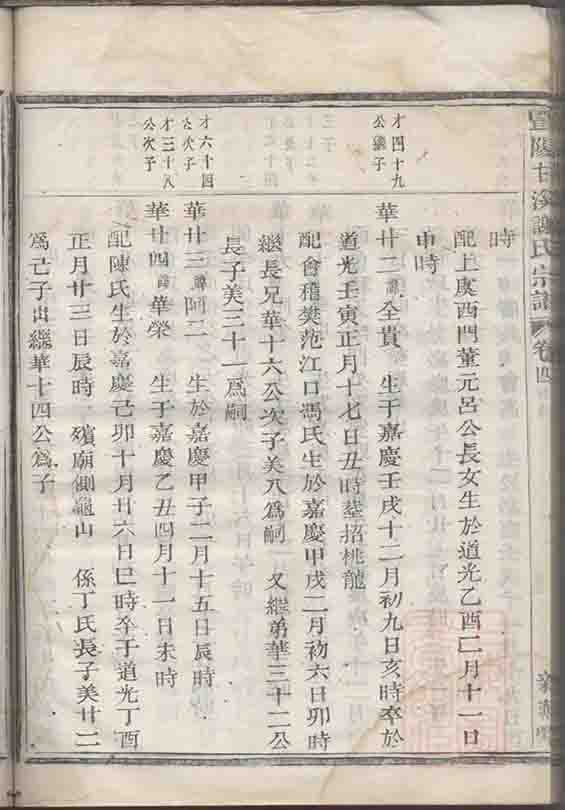 暨陽甘溪謝氏宗譜 卷四
時
配上虞西門董元呂公長女生於道光乙酉二月十一日
申時
才四十九
公繼子
華廿二諱全貴 生于嘉慶壬戌十二月初九日亥時卒於
道光壬寅正月十七日丑時塟招桃龍
配會稽樊范江口馮氏生於嘉慶甲戌二月初六日卯時
繼長兄華十六公次子美八爲嗣 又繼弟華三十二公
長子美三十一爲嗣
才六十四
公次子
華廿三諱阿二 生於嘉慶甲子二月十五日辰時
才三十八
公次子
華廿四諱華榮 生于嘉慶乙丑四月十一日未時
配陳氏生於嘉慶己卯十月廿六日巳時卒于道光丁酉
正月廿三日辰時 殯廟側龜山 係丁氏長子美廿二
爲亡子出繼華十四公爲子